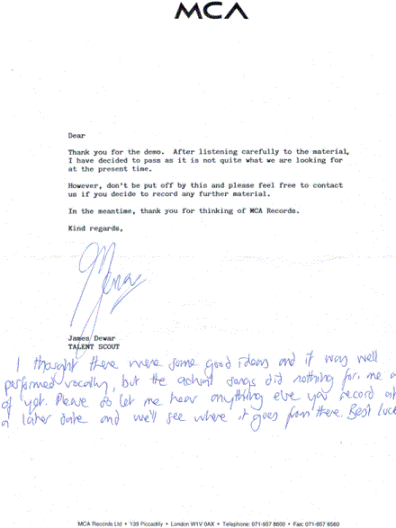 MCA
Dear
Thank you for the demo. After listening carefully to the material,
I have decided to pass as it is not quite what we are looking for
at the present time.
However, don't be put off by this and please feel free to contact
us if you decide to record any further material.
In the meantime, thank you for thinking of MCA Records.
Kind regards,
James Dewar
TALENT SCOUT
I thought there were some good ideas and it was well
performed vocally, but the actual songs did nothing for me a
of yet. Please do let me hear anything else you record at
a later date and we'll see where it goes from there. Best luck
MCA Records Ltd • 139 Piccadilly • London W1V 0AX • Telephone: 071-957 8600 • Fax: 071-957 8560